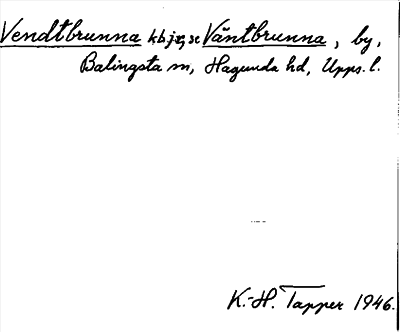 Vendtbrunna k.b.jr, se Väntbrunna, by,
Balingsta sn, Hagunda hd, Upps. l.
K.-H. Tapper 1946.